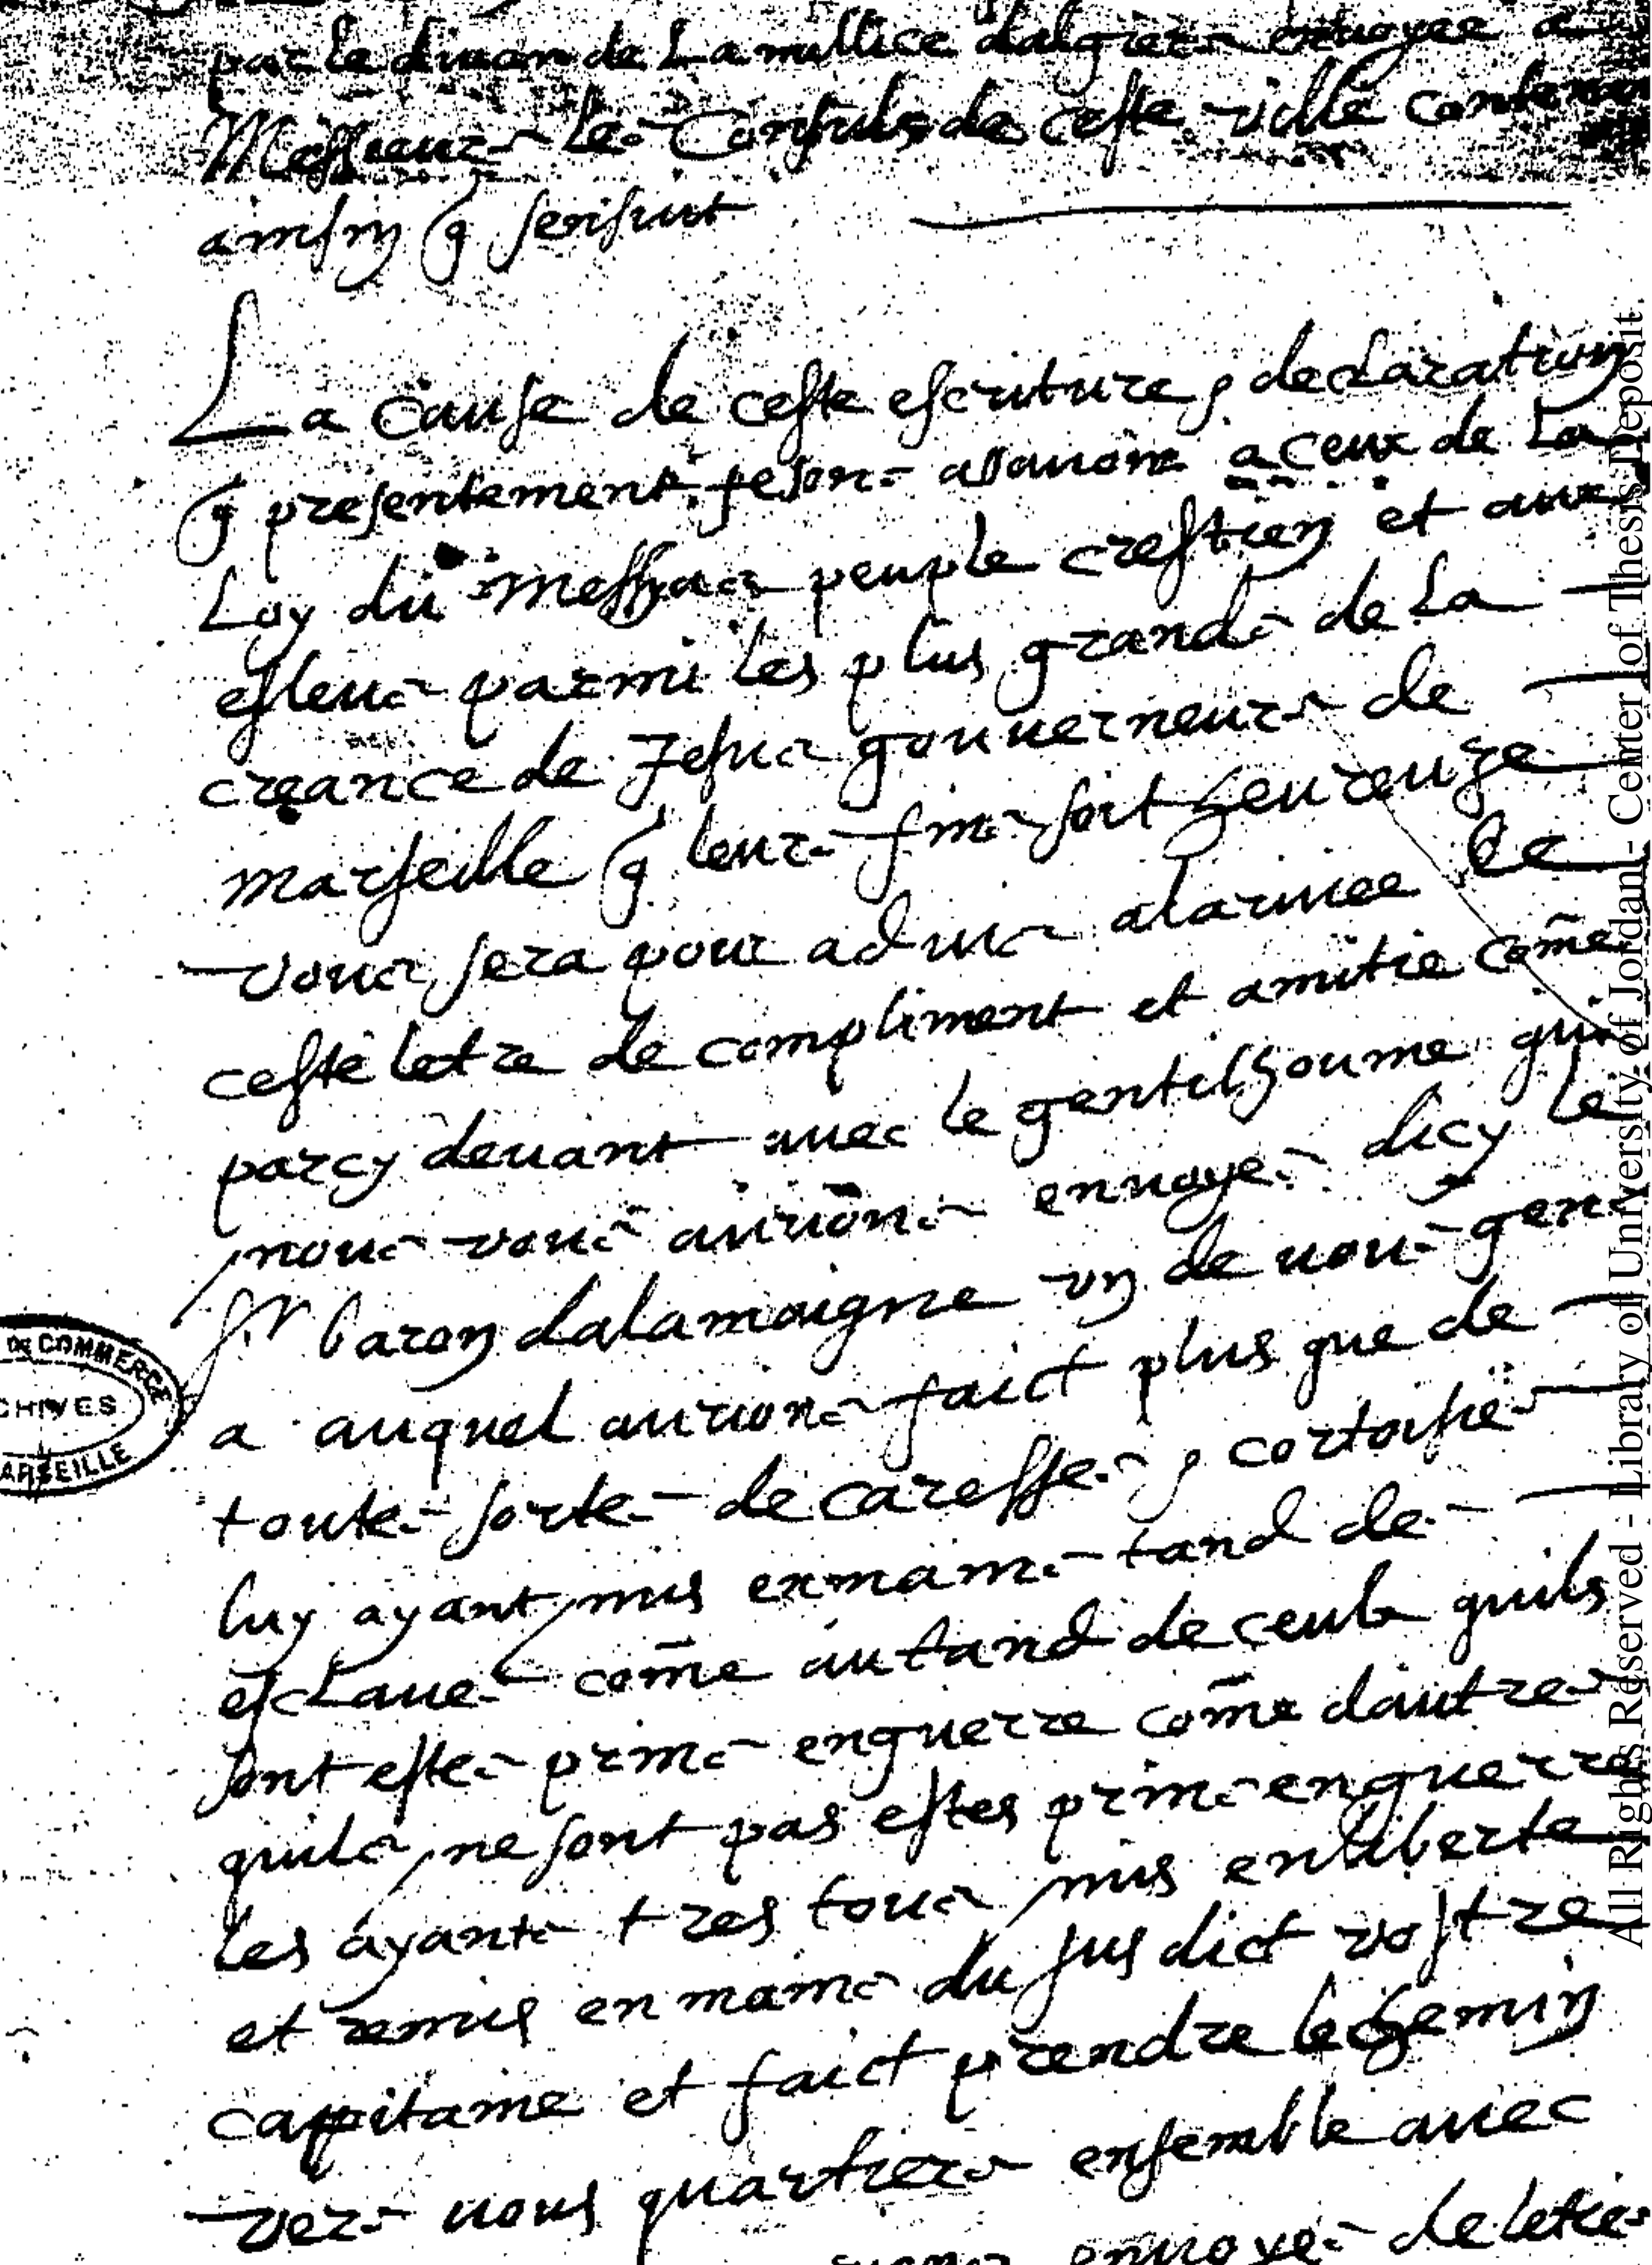 par le divan de La millice dalgiers envoyee a
Messieurs les Consuls de ceste ville contenant
ainsin q sensuit
La cause de ceste escriture & declaration
q presentement fesons assavoir a ceux de La
Loy du Messias peuple crestien et aux
esleus parmi les plus grands de La
creance de Jesus gouverneurs de
marseille q leurs fins soit heureuze
vous sera pour advis alarivee de
ceste letre de compliment et amitie come
parcy devant avec le gentilhoume qui
nous vous avions envoyes dicy le
Sr baron dalamaigne un de vous gens
a auquel avions faict plus que de
toutes sortes de caresses & cortoisies
luy ayant mis exmains tand des
esclaves come autand de ceulx quils
sont estes prins enguerre come dautres
quils ne sont pas estes prins enguerre
les ayants tres tous mis enliberte
et remis en mains du susdict vostre
cappitaine et faict prendre le chemin
vers vous quartiers ensemble avec
envoyes de letres
DE COMMERCE
CHIVES
ARSEILLE
All Rights Reserved - Library of University of Jordan - Center of Thesis Deposit